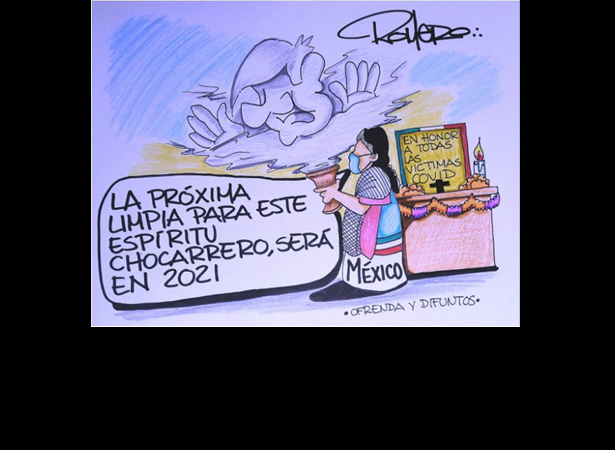 Romero
EN HONOR
A TODAS
LAS
VICTIMAS
COVID
LA PRÓXIMA
LIMPIA PARA ESTE
ESPÍRITU
CHOCARRERO, SERÁ
EN 2021
MÉXICO
•OFRENDA Y DIFUNTOS•